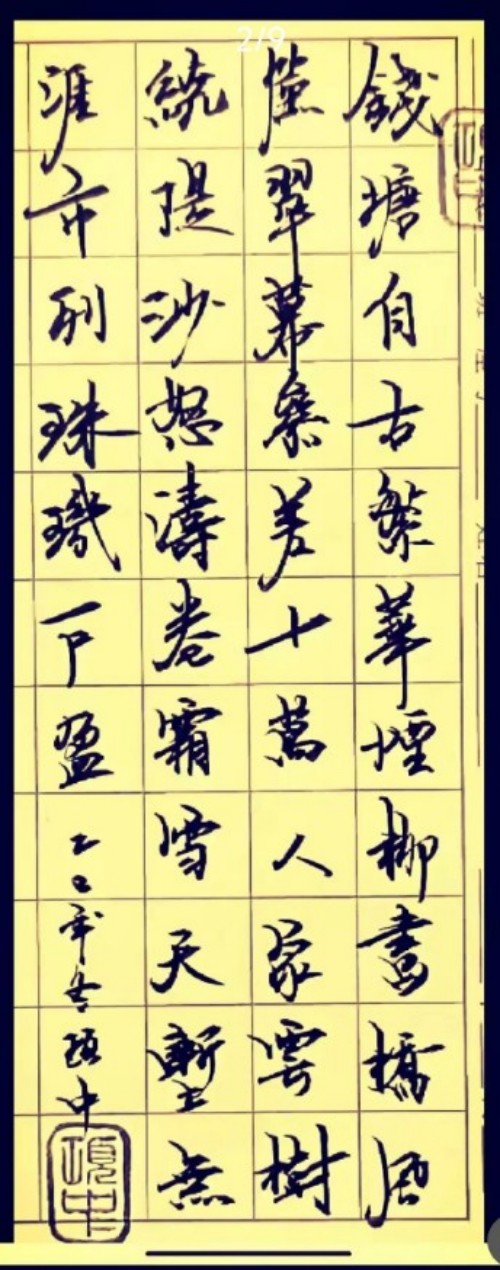 2/9
錢塘自古繁華煙柳畫橋風
簾翠幕參差十萬人家雲樹
繞隄沙怒濤卷霜雪天塹無
涯市列珠璣户盈
二〇年冬項中
項中